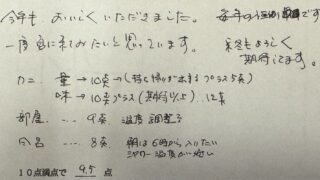 今年も、おいしくいただきました。
毎年の です
一度 に来てみたいと思っています。
来年もよろしく
期待してます。
カニ. 量 → 10点 → ( プラス5点)
味 → 10点プラス(期待以上)...12点
部屋. ... 9点 温度調整
... 8点 朝は6時から入りたい
シャワー温度が
10点満点で 9.5 点